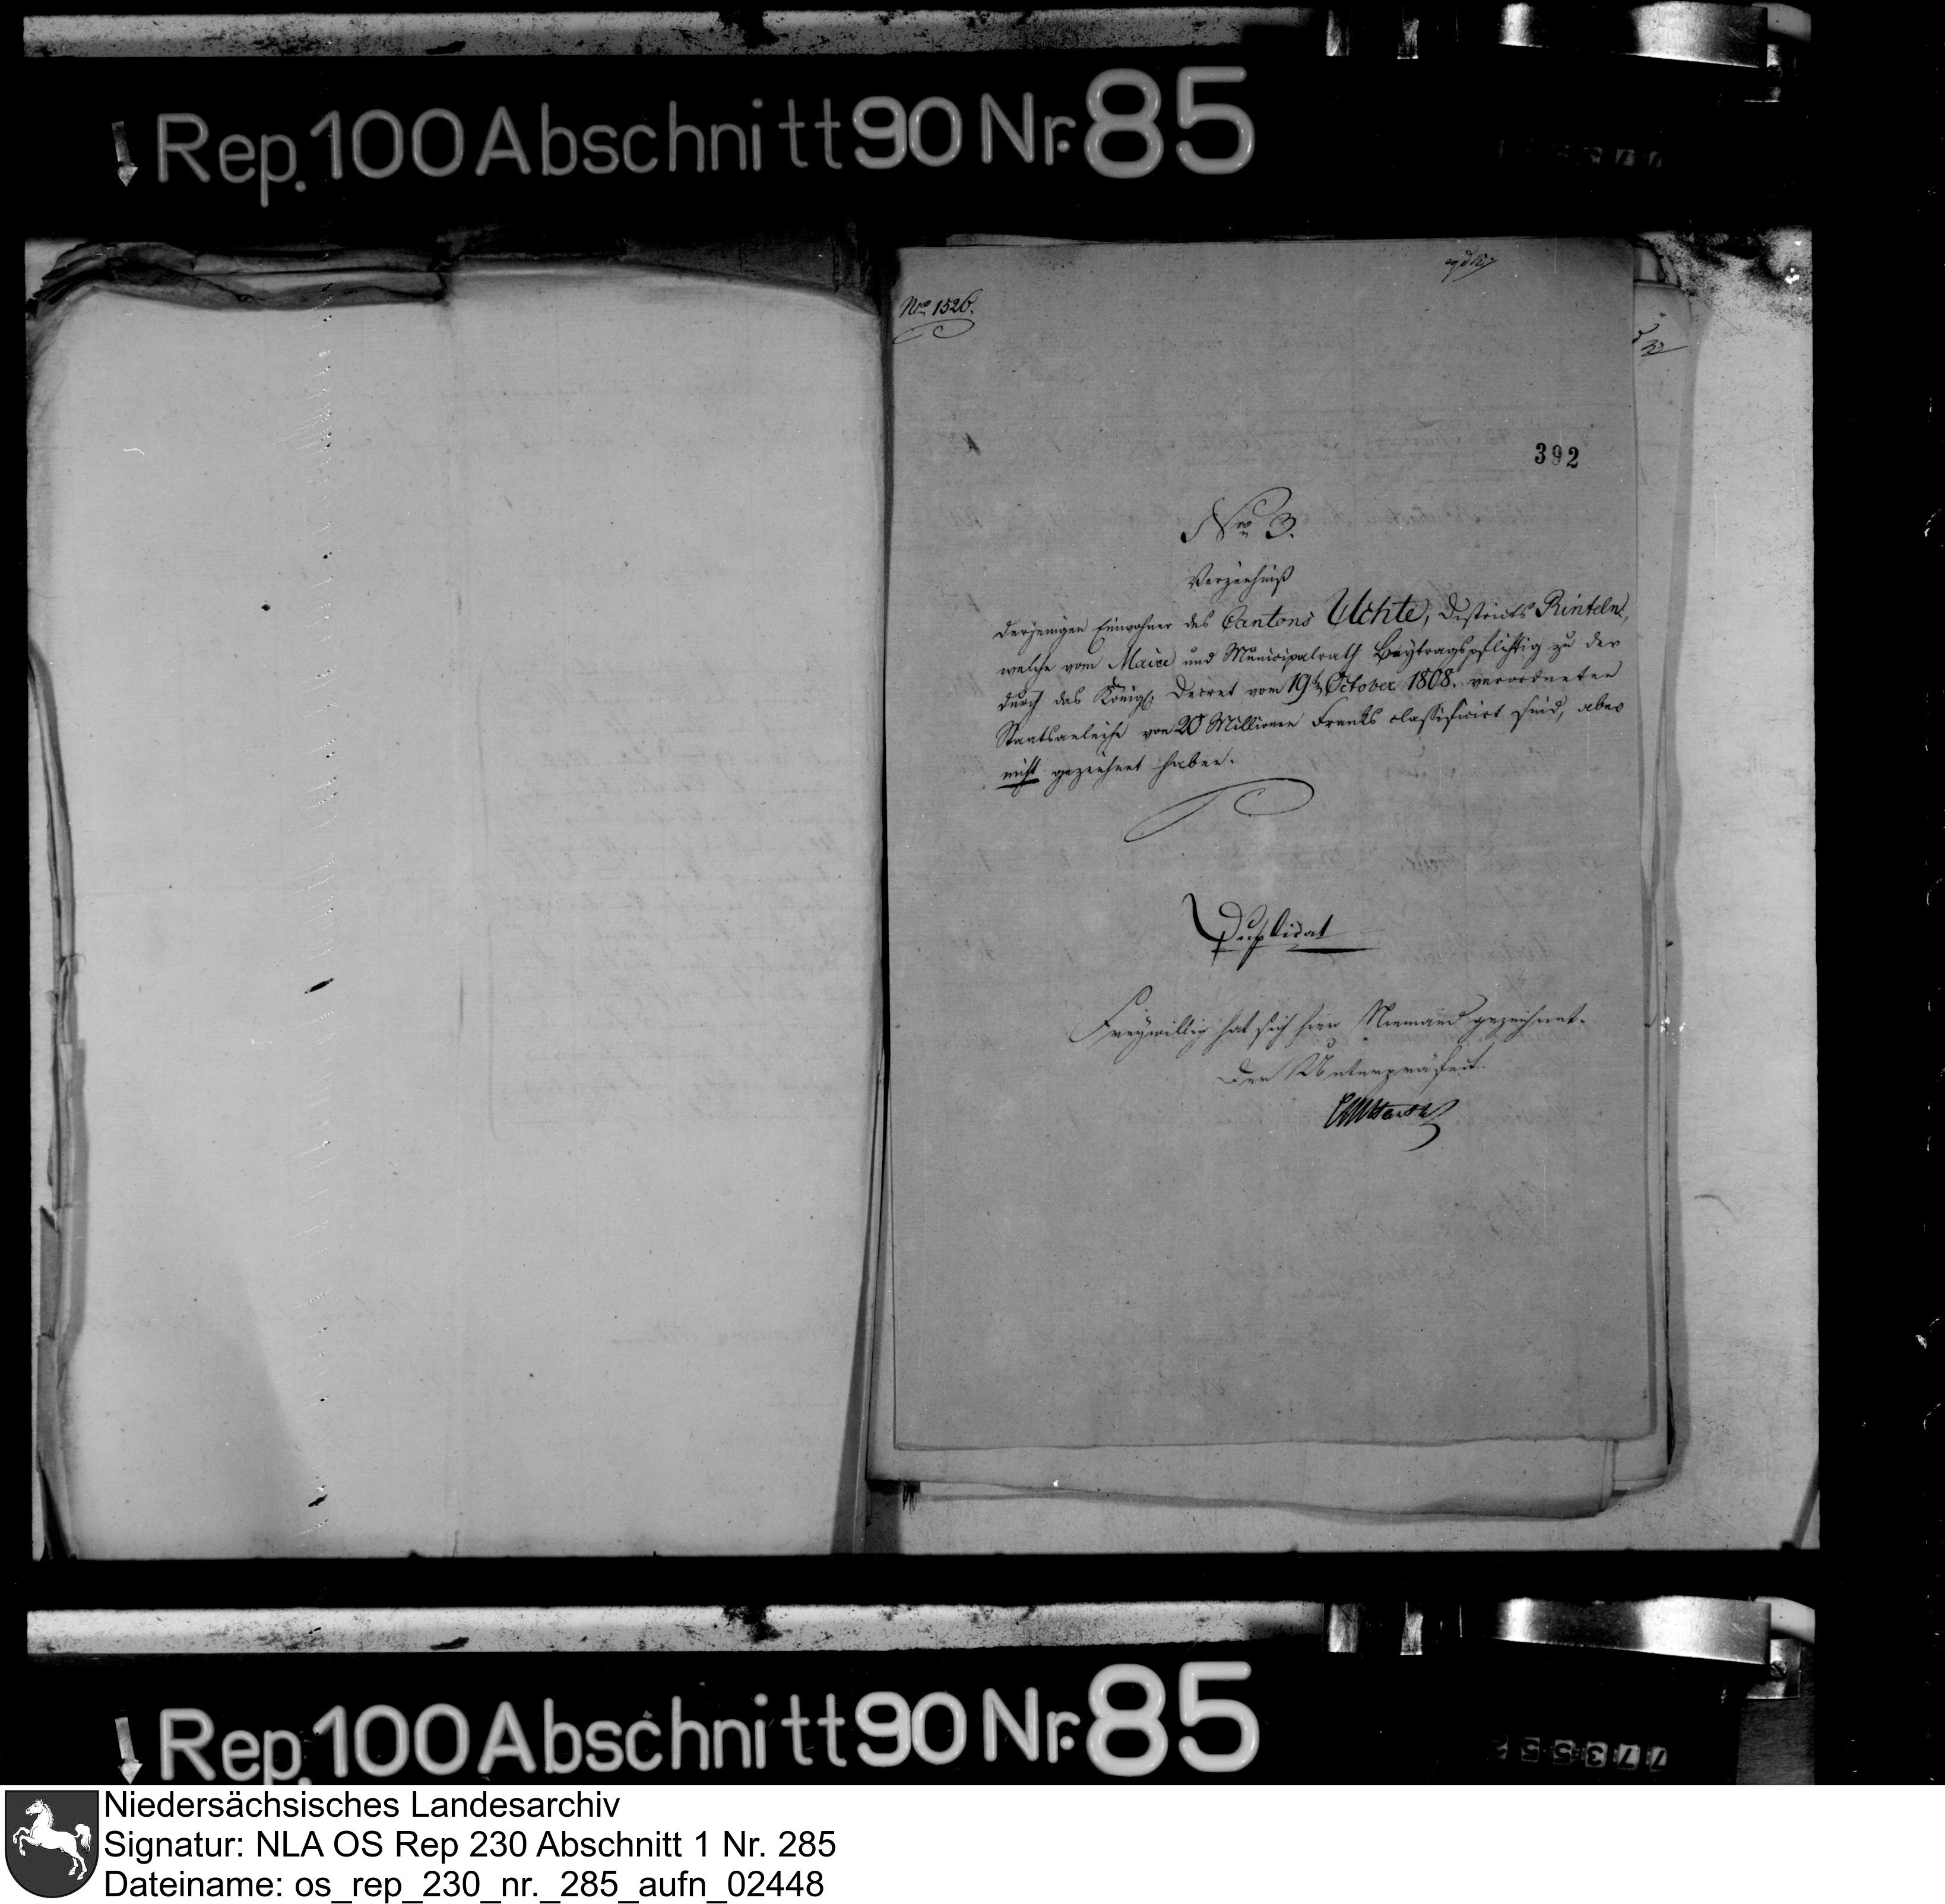 Rep. 100 Abschnitt 90 Nr. 85
Nro 1526.
392
Nro 3.
Verzeichniß
derjenigen Einwohner des Cantons Uchte, Districts Rinteln,
welche vom Maire und Municipalrath Beytragspflichtig zu der
durch das Königl. Decret vom 19ten October 1808. verordneten
Staatsanleihe von 20 Millionen Franks classificirt sind, aber
nicht gezeichnet haben.
Duplicat
Freywillig hat sich hier Niemand gezeichnet.
Der Unterpräfect.
Rep. 100 Abschnitt 90 Nr. 85
Niedersächsisches Landesarchiv
Signatur: NLA OS Rep 230 Abschnitt 1 Nr. 285
Dateiname: os_rep_230_nr._285_aufn_02448